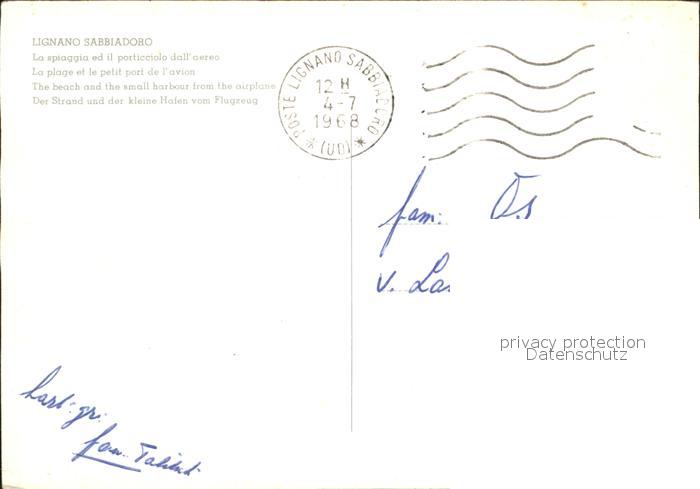 LIGNANO SABBIADORO
La spiaggia ed il porticciolo dall'aereo
La plage et le petit port de l'avion
The beach and the small harbour from the airplane
Der Strand und der kleine Hafen vom Flugzeug
POSTE LIGNANO SABBIADORO
12 H
4-7
1968
* (UD) *
fam:
v. La
privacy protection
Datenschutz
hart. gr.
fam.